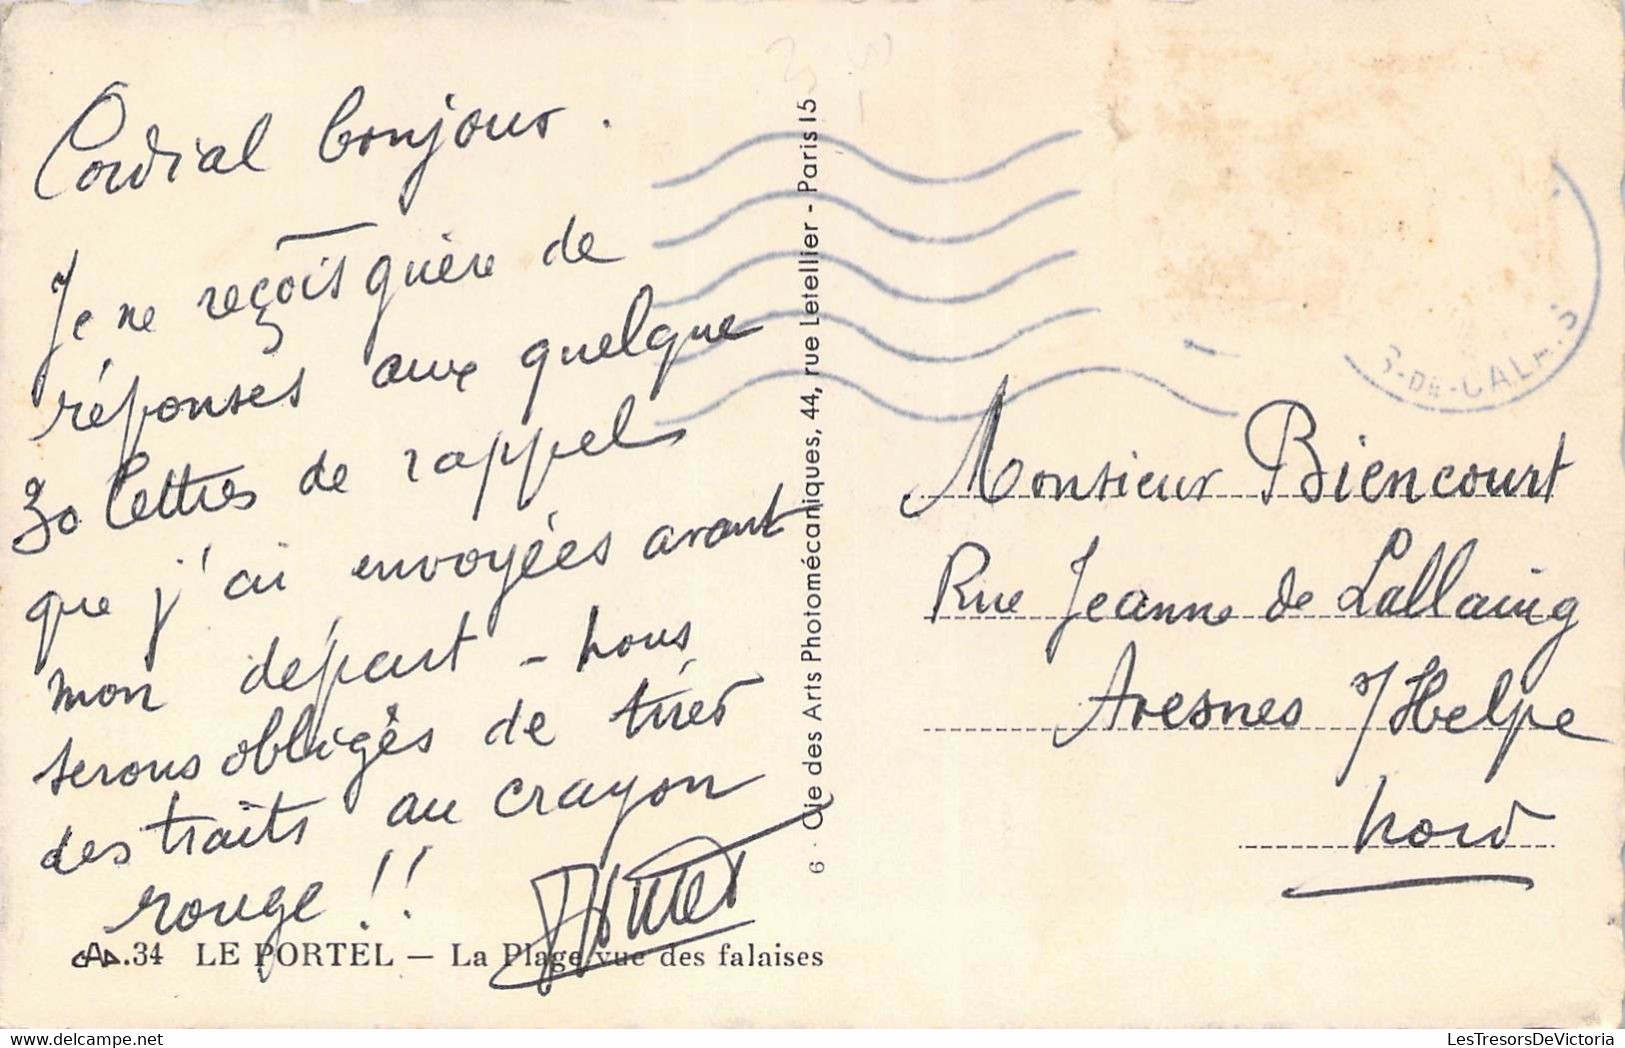 Cordial bonjour.
Je ne reçois guère de
réponses aux quelque
30 lettres de rappels
que j'ai envoyées avant
mon départ - nous
serons obligés de tirer
des traits au crayon
rouge !!
34 LE PORTEL — La Plage vue des falaises
6 - Cie des Arts Photomécaniques, 44, rue Letellier - Paris 15
S-DE-CALAIS
Monsieur Biencourt
Rue Jeanne de Lallaing
Avesnes s/Helpe
Nord
LesTresorsDeVictoria